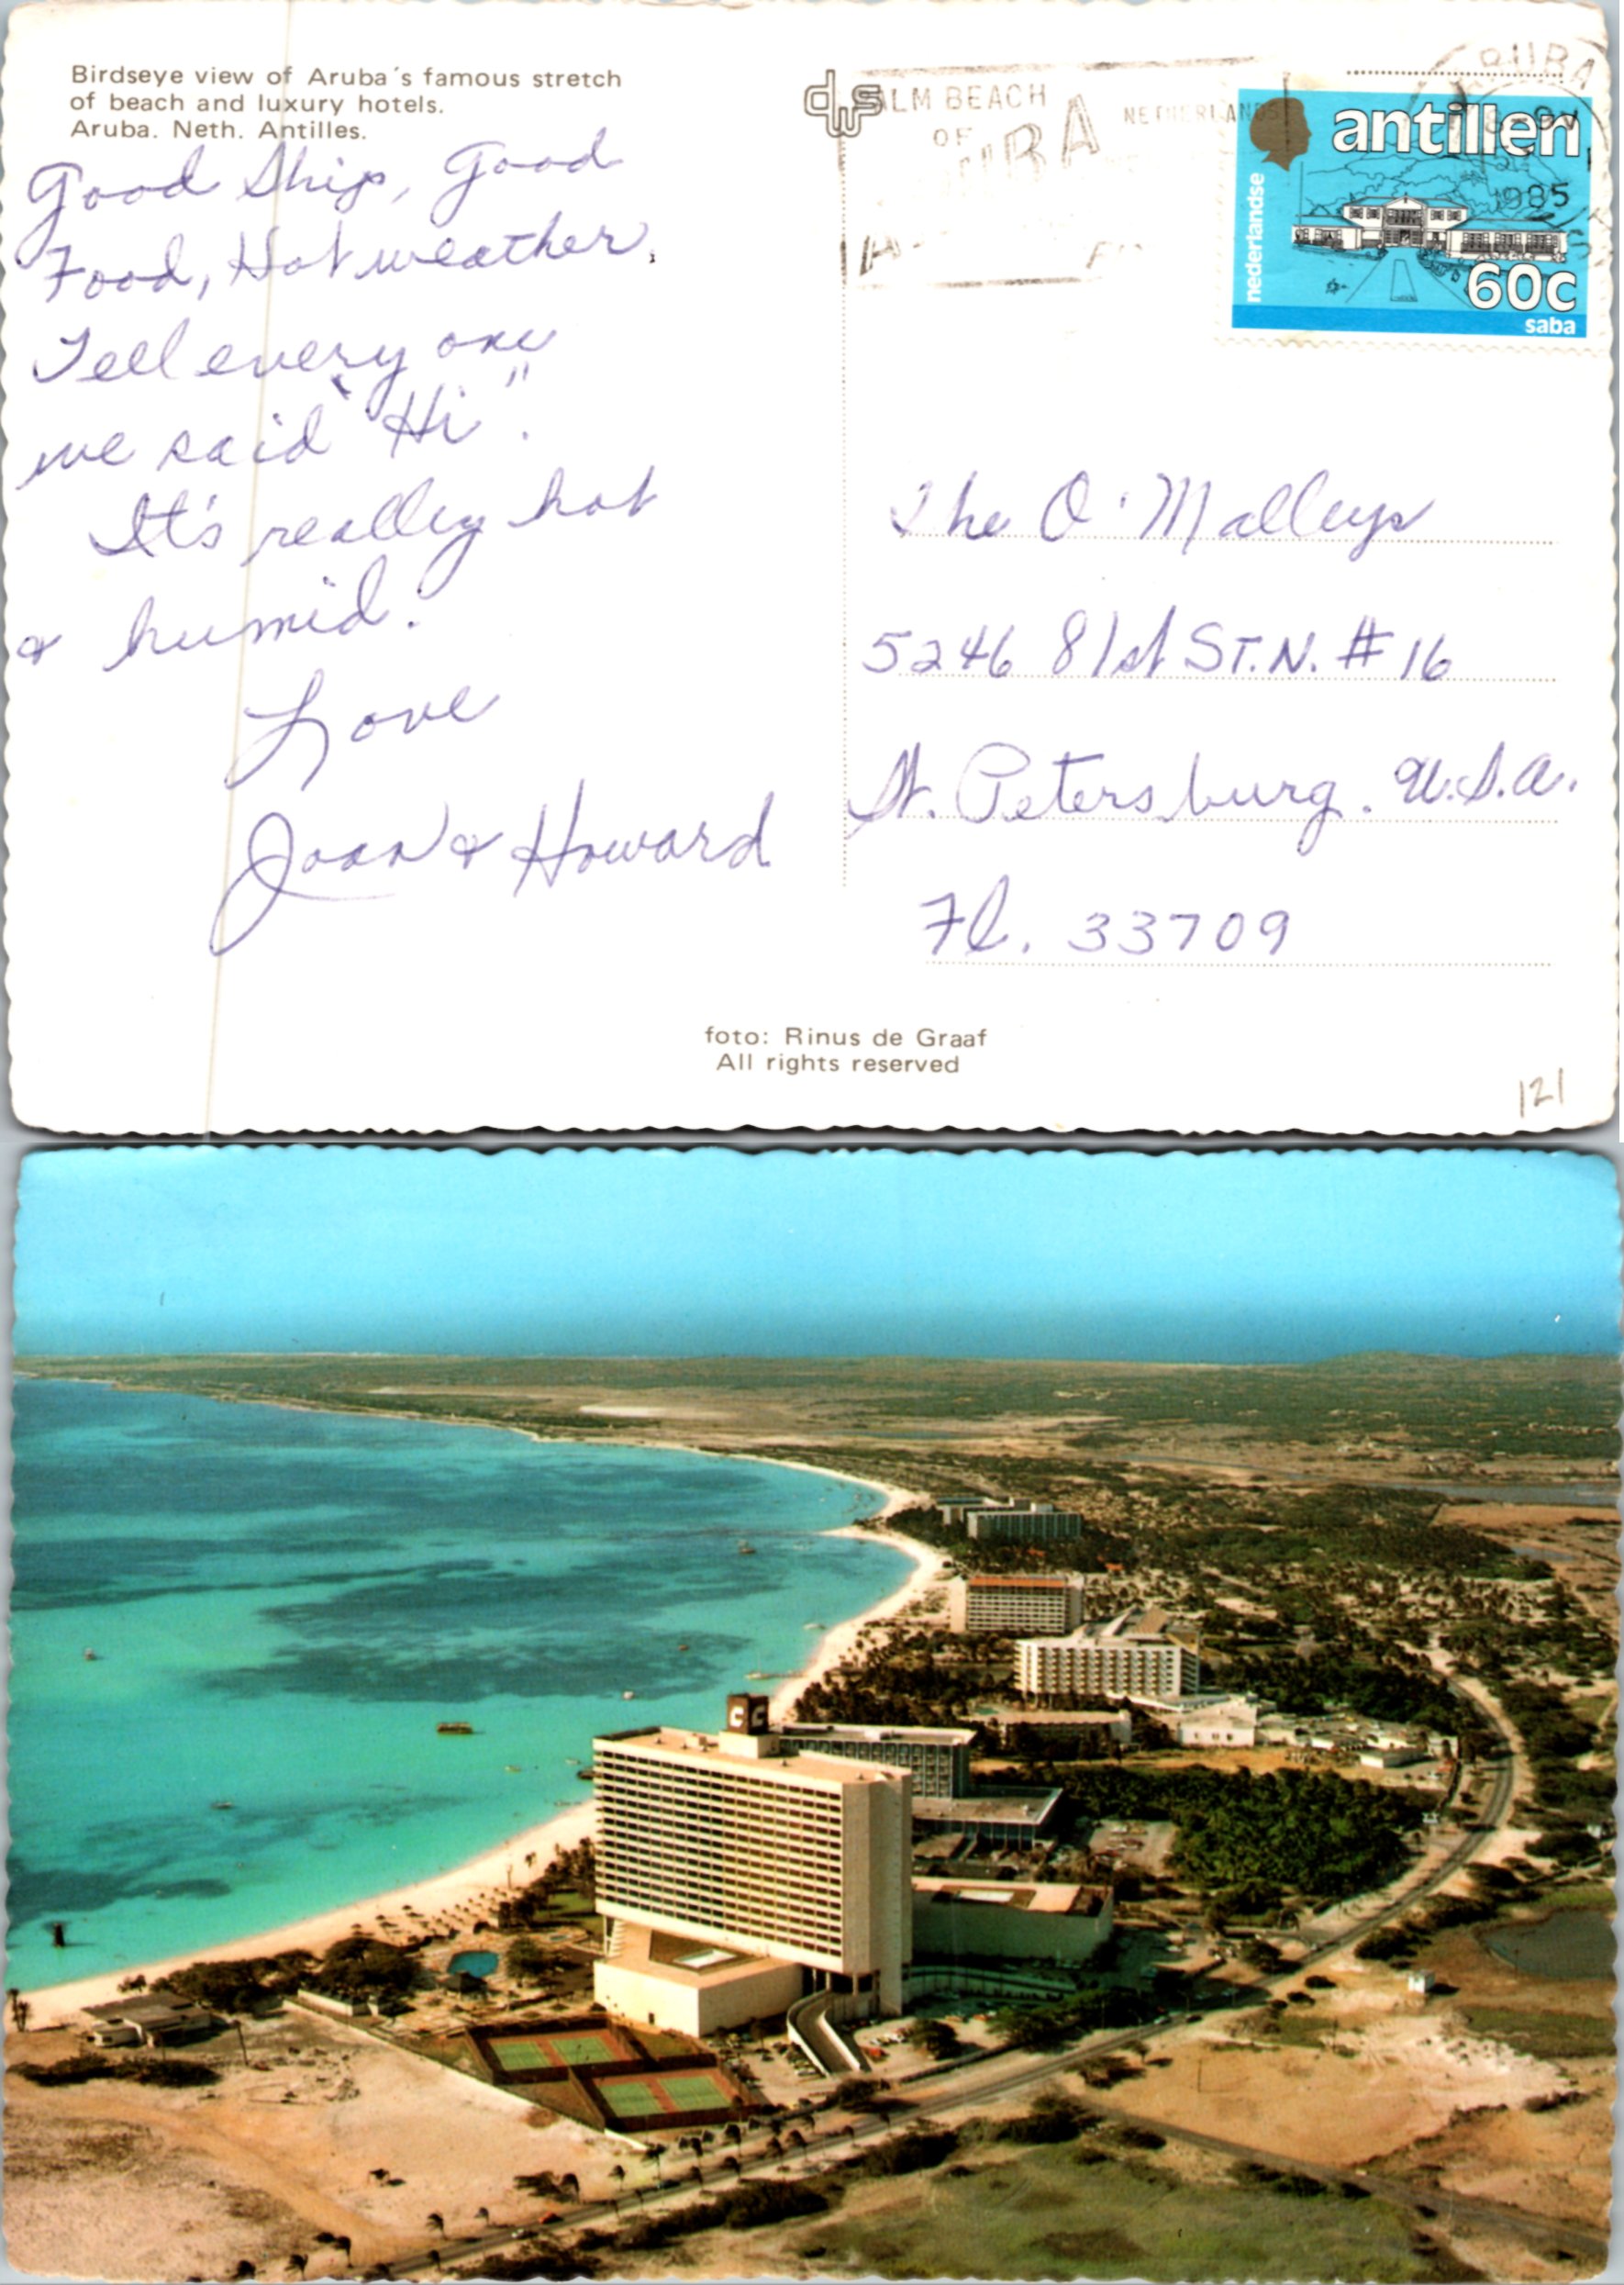 Birdseye view of Aruba´s famous stretch
of beach and luxury hotels.
Aruba. Neth. Antilles.
Good Ship, Good
Food, Hot weather.
Tell every one
we said "Hi".
It's really hot
& humid.
Love
Joan & Howard
dws
ALM BEACH
OF
NETHERLANDS
UBA
RUBA
1985
antillen
nederlandse
60c
saba
The O'Malleys
5246 81st ST. N. #16
St. Petersburg. U.S.A.
Fl. 33709
foto: Rinus de Graaf
All rights reserved
121
CC